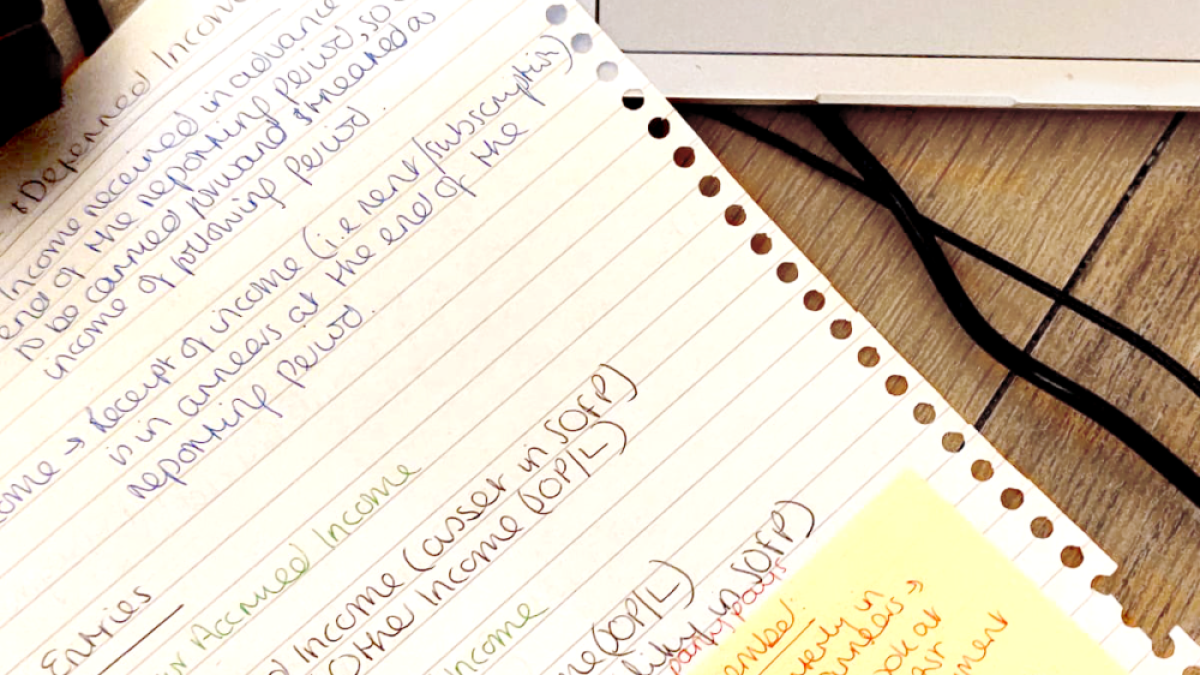 *Deferred Income
Income received in advance
end of the reporting period, so
to be carried forward & treated as
income of following period.
→ Receipt of income (i.e rent/subscription)
is in arrears at the end of the
reporting period.
Entries
Accrued Income
Income (asset in SOFP)
Other Income (SOP/L)
Income
(SOP/L)
in SOFP)
party pays
in
arrears →
look at